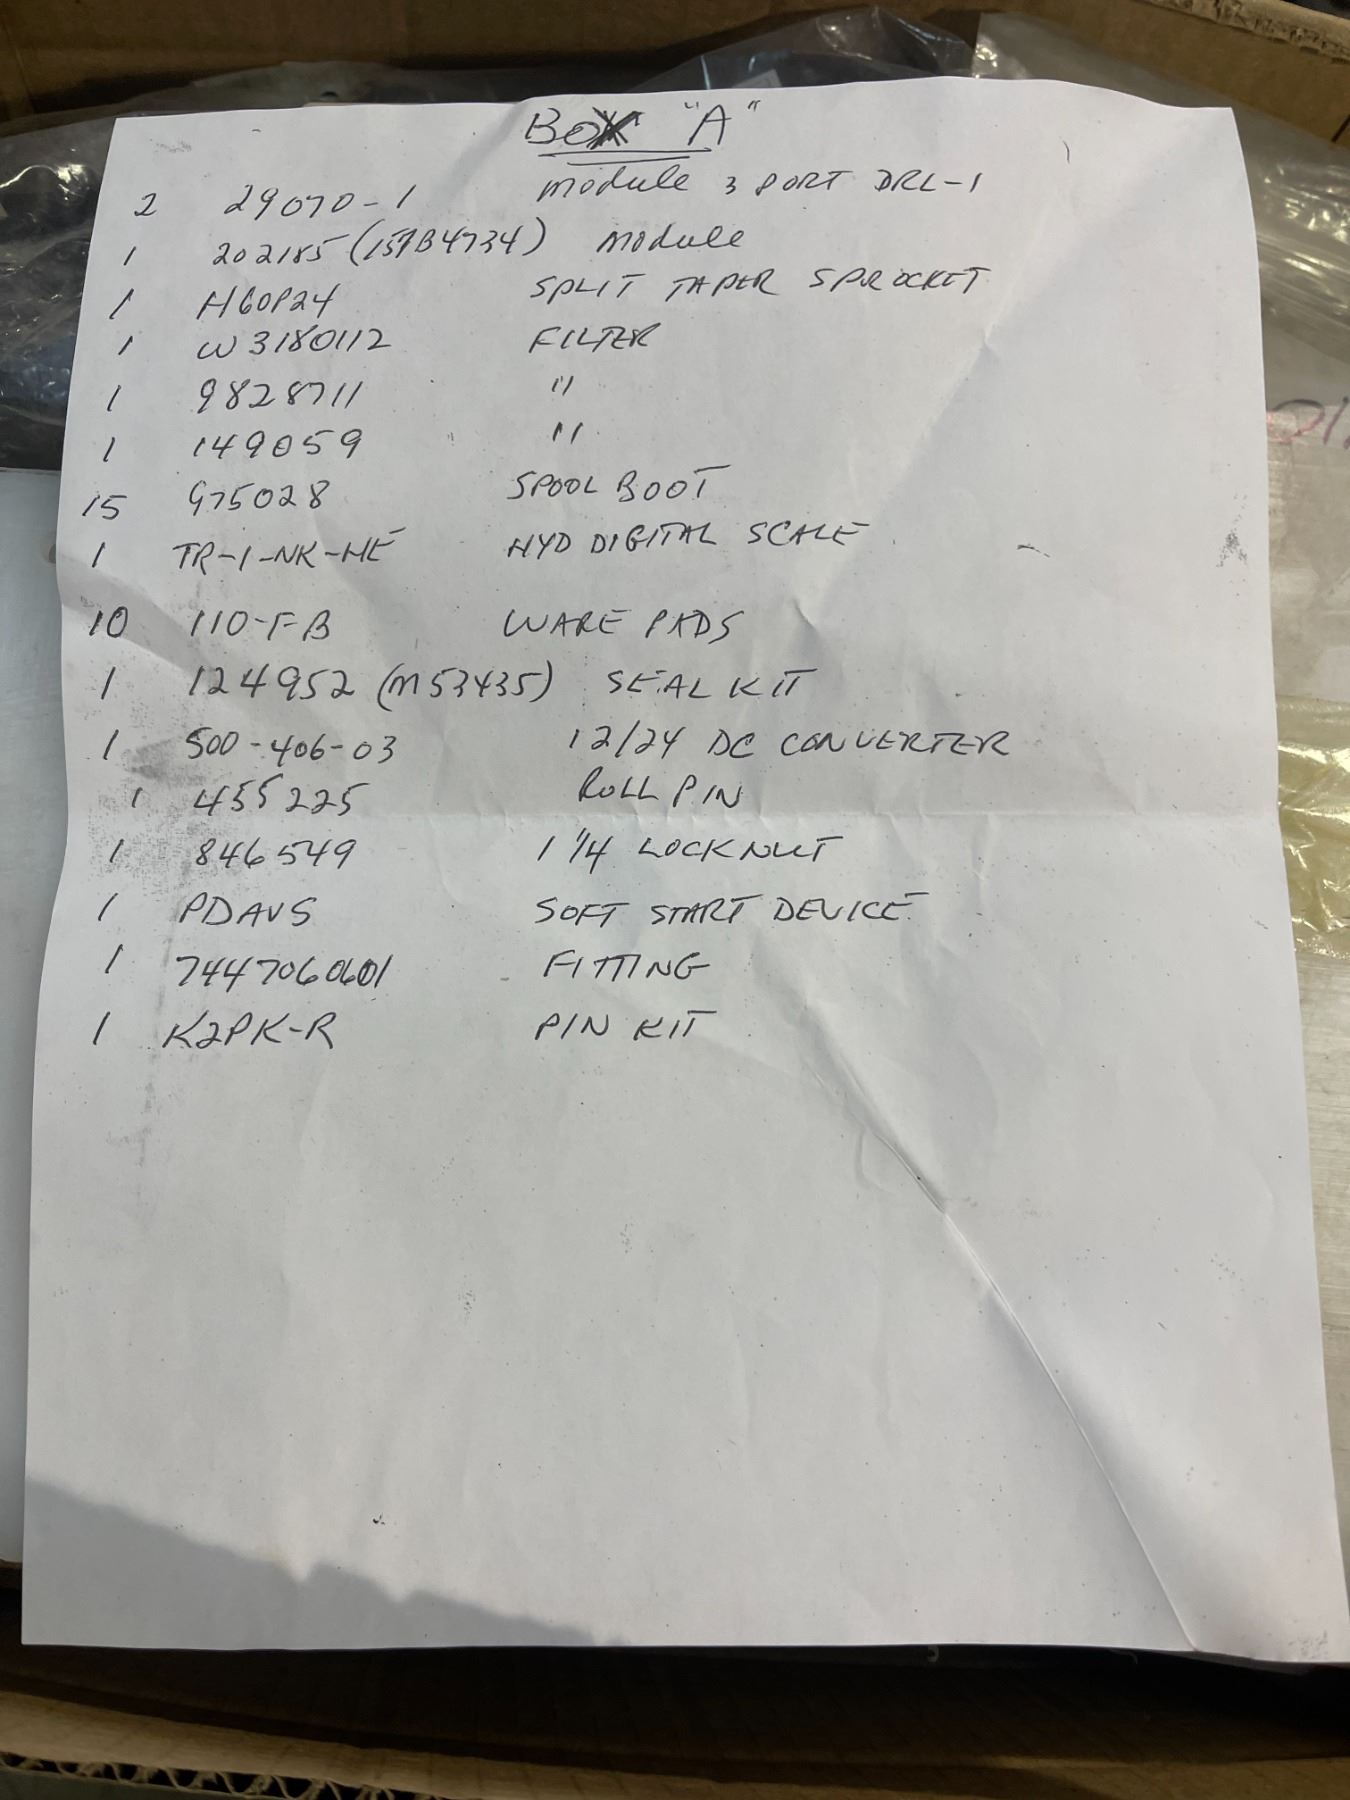 BOX "A"
2 29070-1 module 3 PORT DRL-1
1 202185 (157B4734) module
1 H60P24 SPLIT TAPER SPROCKET
1 W3180112 FILTER
1 9828711 "
1 149059 "
15 975028 SPOOL BOOT
1 TR-1-NK-HE HYD DIGITAL SCALE
10 110-FB WARE PADS
1 124952 (M53435) SEAL KIT
1 500-406-03 12/24 DC CONVERTER
1 455225 ROLL PIN
1 846549 1 1/4 LOCKNUT
1 PDAVS SOFT START DEVICE
1 7447060601 FITTING
1 K2PK-R PIN KIT